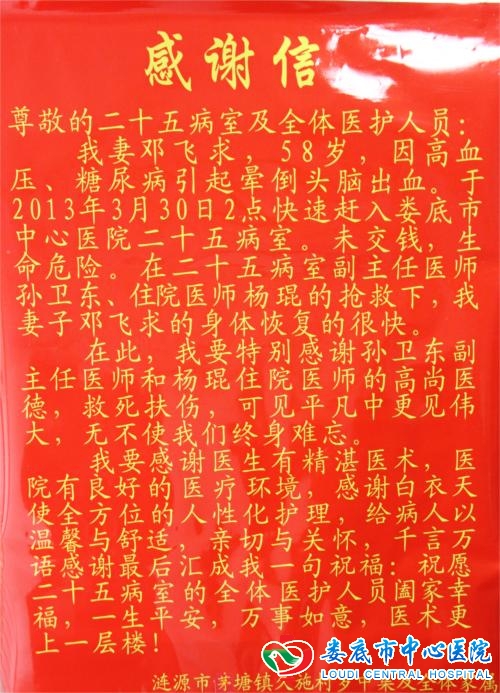 感谢信
尊敬的二十五病室及全体医护人员：
我妻邓飞求，58岁，因高血
压、糖尿病引起晕倒头脑出血。于
2013年3月30日2点快速赶入娄底市
中心医院二十五病室。未交钱，生
命危险。在二十五病室副主任医师
孙卫东、住院医师杨琨的抢救下，我
妻子邓飞求的身体恢复的很快。
在此，我要特别感谢孙卫东副
主任医师和杨琨住院医师的高尚医
德，救死扶伤，可见平凡中更见伟
大，无不使我们终身难忘。
我要感谢医生有精湛医术，医
院有良好的医疗环境，感谢白衣天
使全方位的人性化护理，给病人以
温馨与舒适，亲切与关怀，千言万
语感谢最后汇成我一句祝福：祝愿
二十五病室的全体医护人员阖家幸
福，一生平安，万事如意，医术更
上一层楼！
娄底市中心医院
LOUDI CENTRAL HOSPITAL
涟源市茅塘镇